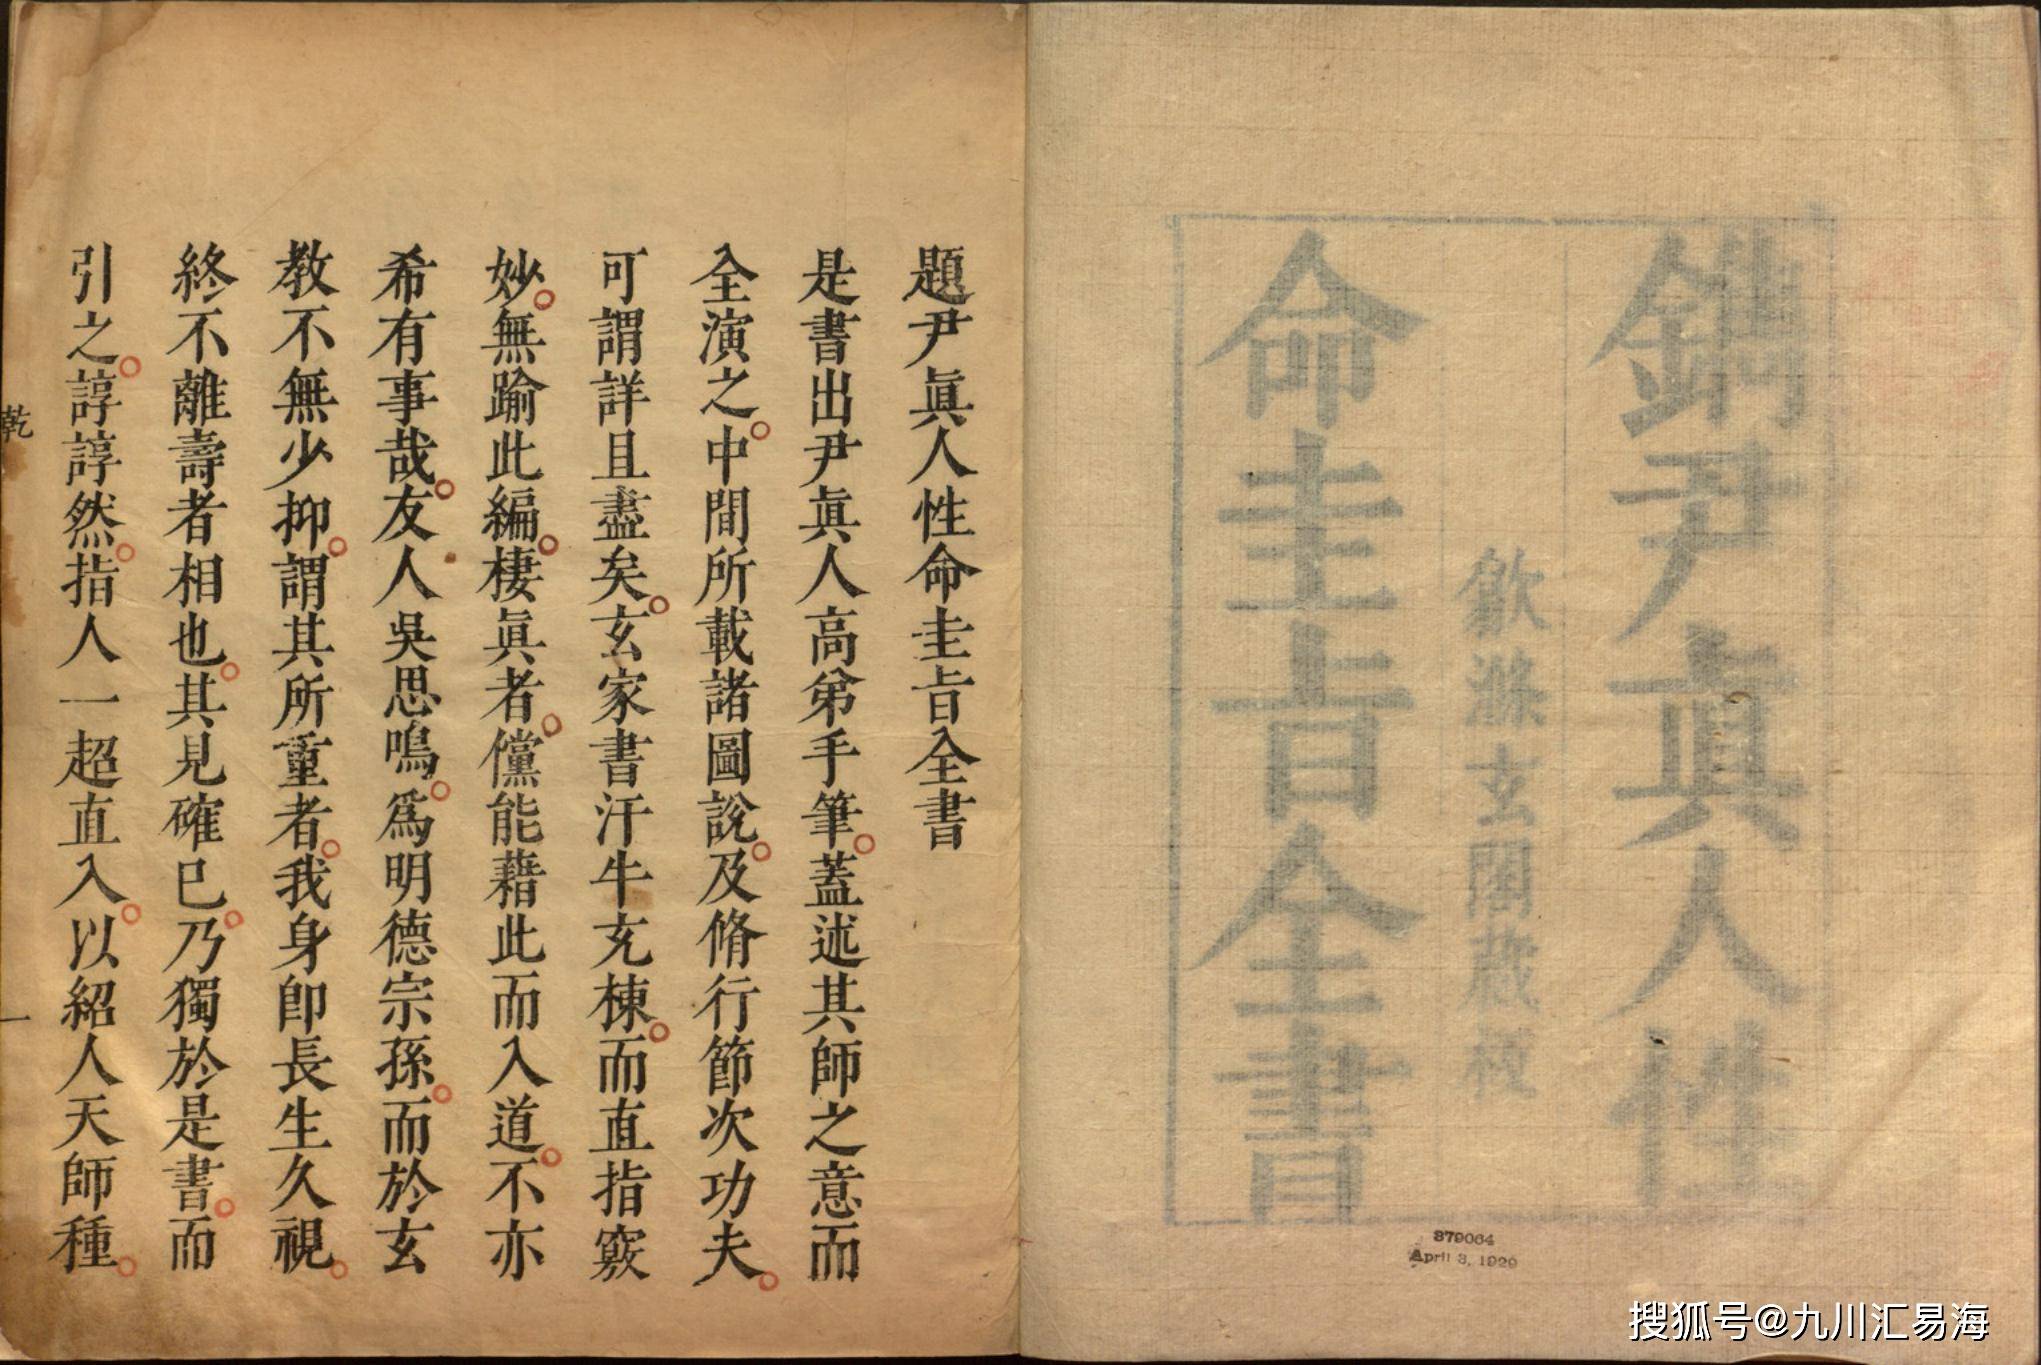 鐫尹眞人性
歙滌玄閣蔵板
命圭旨全書
379064
April 3, 1929
題尹眞人性命圭旨全書
是書出尹眞人高弟手筆。蓋述其師之意而
全演之。中間所載諸圖說。及脩行節次功夫。
可謂詳且盡矣。玄家書汗牛充棟。而直指竅
妙。無踰此編。棲眞者。儻能藉此而入道。不亦
希有事哉。友人吳思鳴。爲明德宗孫。而於玄
教不無少抑。謂其所重者。我身卽長生久視。
終不離壽者相也。其見確已。乃獨於是書。而
引之。諄諄然。指人一超直入。以紹人天師種。
乾
一
搜狐号@九川汇易海